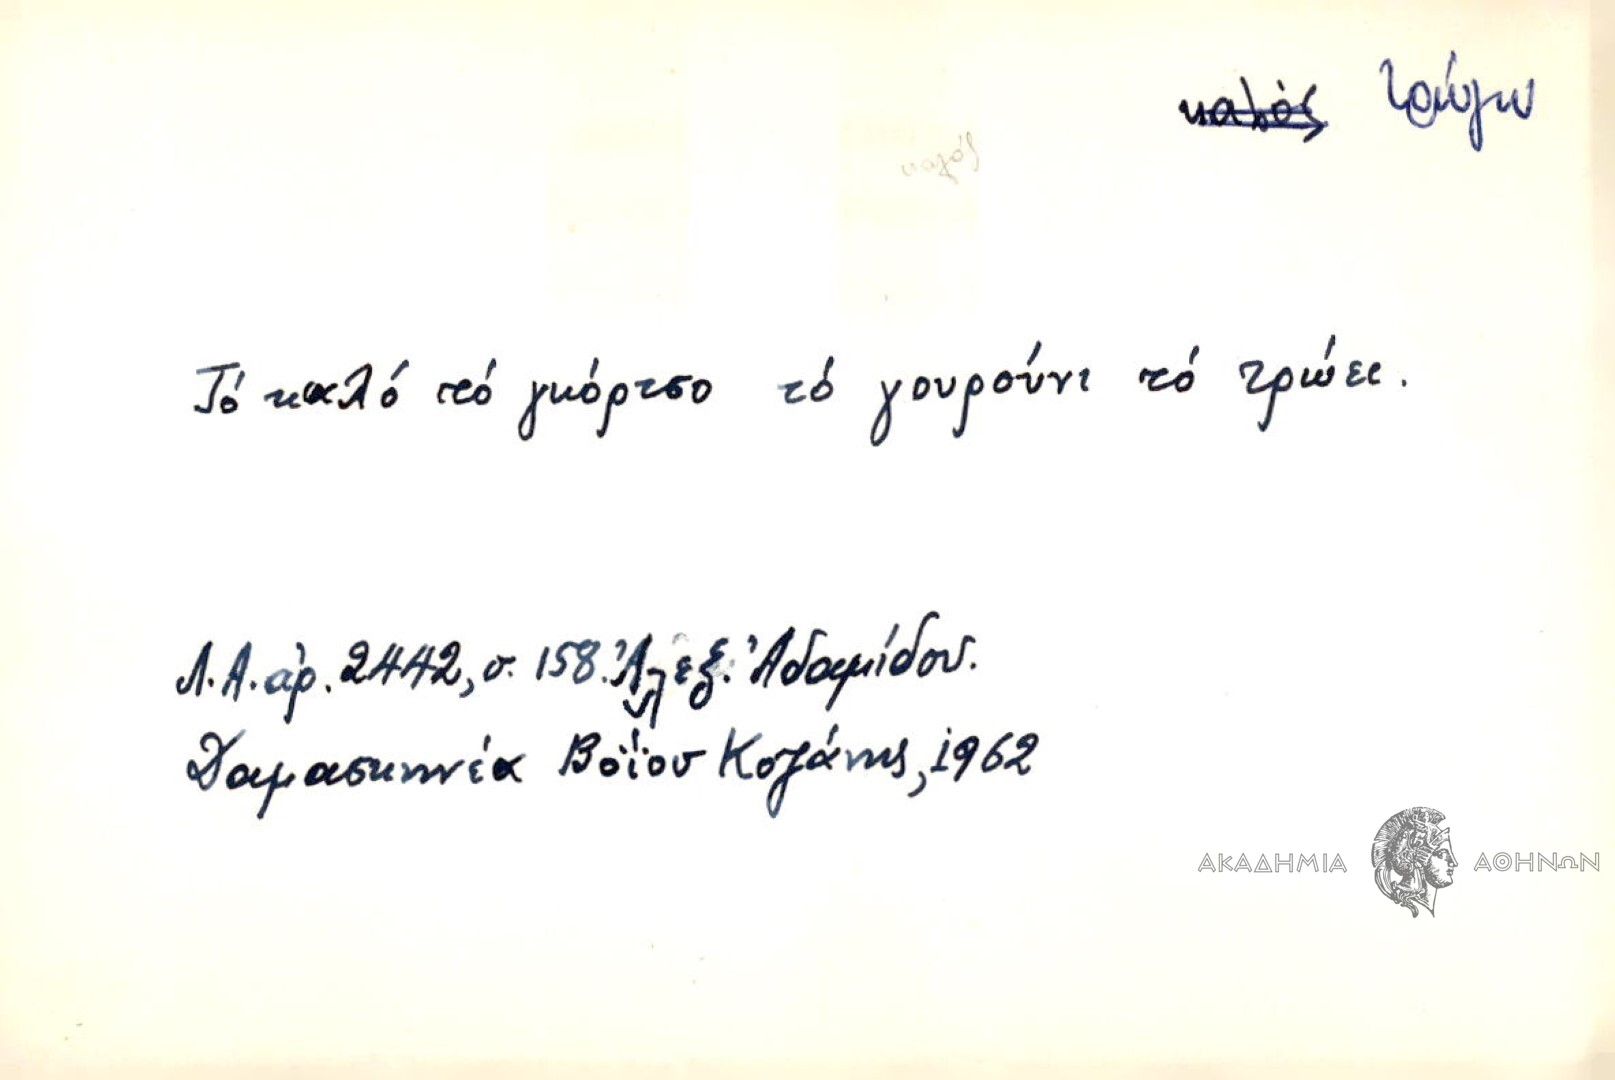 καλός τρώγω
καλός
Τό καλό τό γκόρτσο τό γουρούνι τό τρώει.
Λ.Α. ἀρ. 2442, σ. 158. Ἀλεξ. Ἀδαμίδου.
Δαμασκηνέα Βοΐου Κοζάνης, 1962
ΑΚΑΔΗΜΙΑ ΑΘΗΝΩΝ